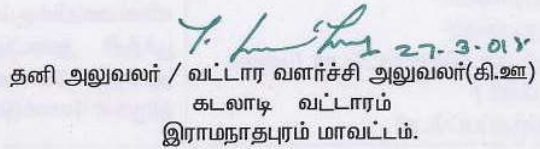 27-3-018
தனி அலுவலர் / வட்டார வளர்ச்சி அலுவலர்(கி.ஊ)
கடலாடி வட்டாரம்
இராமநாதபுரம் மாவட்டம்.